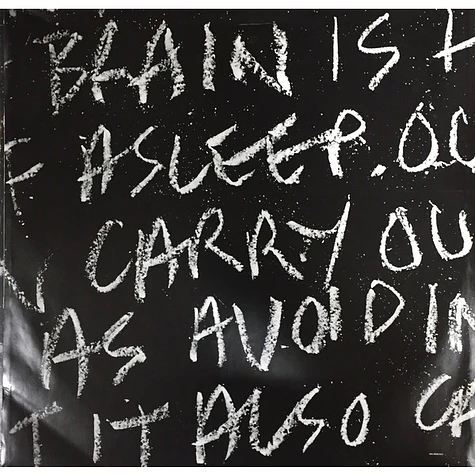 BRAIN IS
ASLEEP. OU
CARRY OU
AS AVOIDIN
T IT ALSO CA